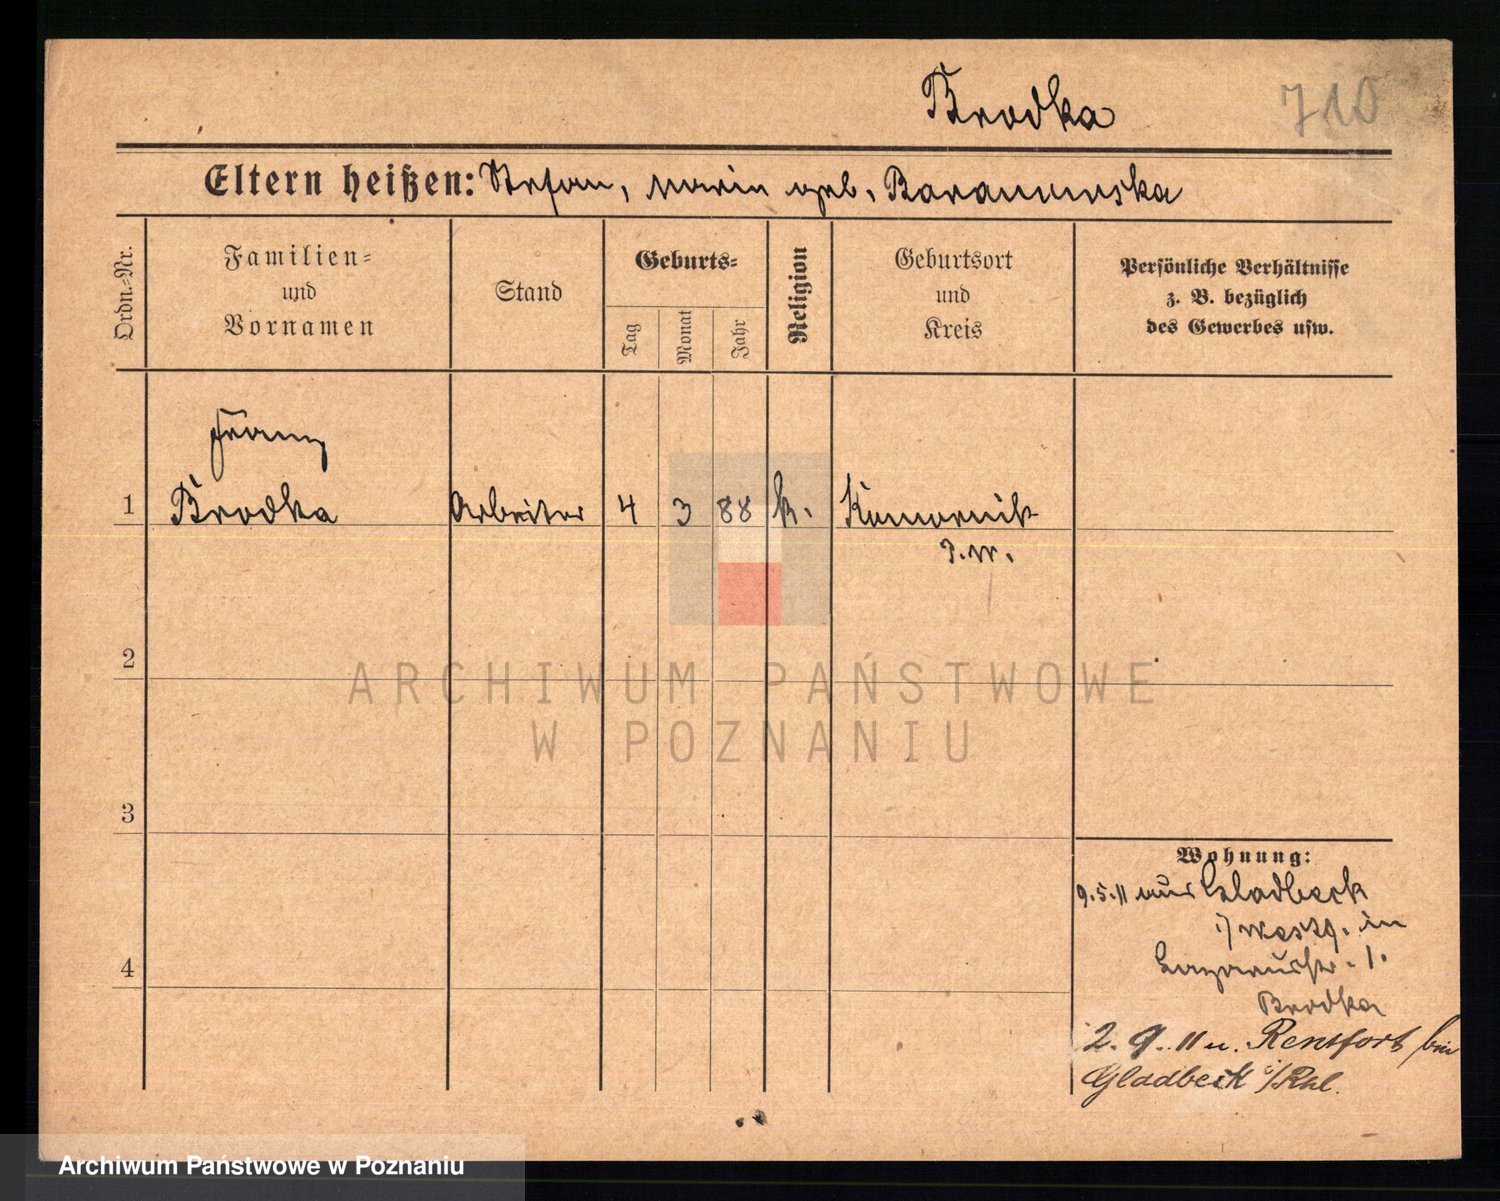 Brodka
710
Eltern heißen: Stefan, Marie geb. Baranowska
Ordn.-Nr.
Familien-
und
Vornamen
Stand
Geburts-
Tag
Monat
Jahr
Religion
Geburtsort
und
Kreis
Persönliche Verhältnisse
z. B. bezüglich
des Gewerbes usw.
Franz
1 Brodka Arbeiter 4 3 88 k. Komornik
P.W.
2
3
4
Wohnung:
9.5.11 aus Gladbeck
i/ Westf. in
Lazarusstr. 1.
Brodka
2. 9. 11 n. Rentfort bei
Gladbeck i/Rhl.
ARCHIWUM PAŃSTWOWE
W POZNANIU
Archiwum Państwowe w Poznaniu